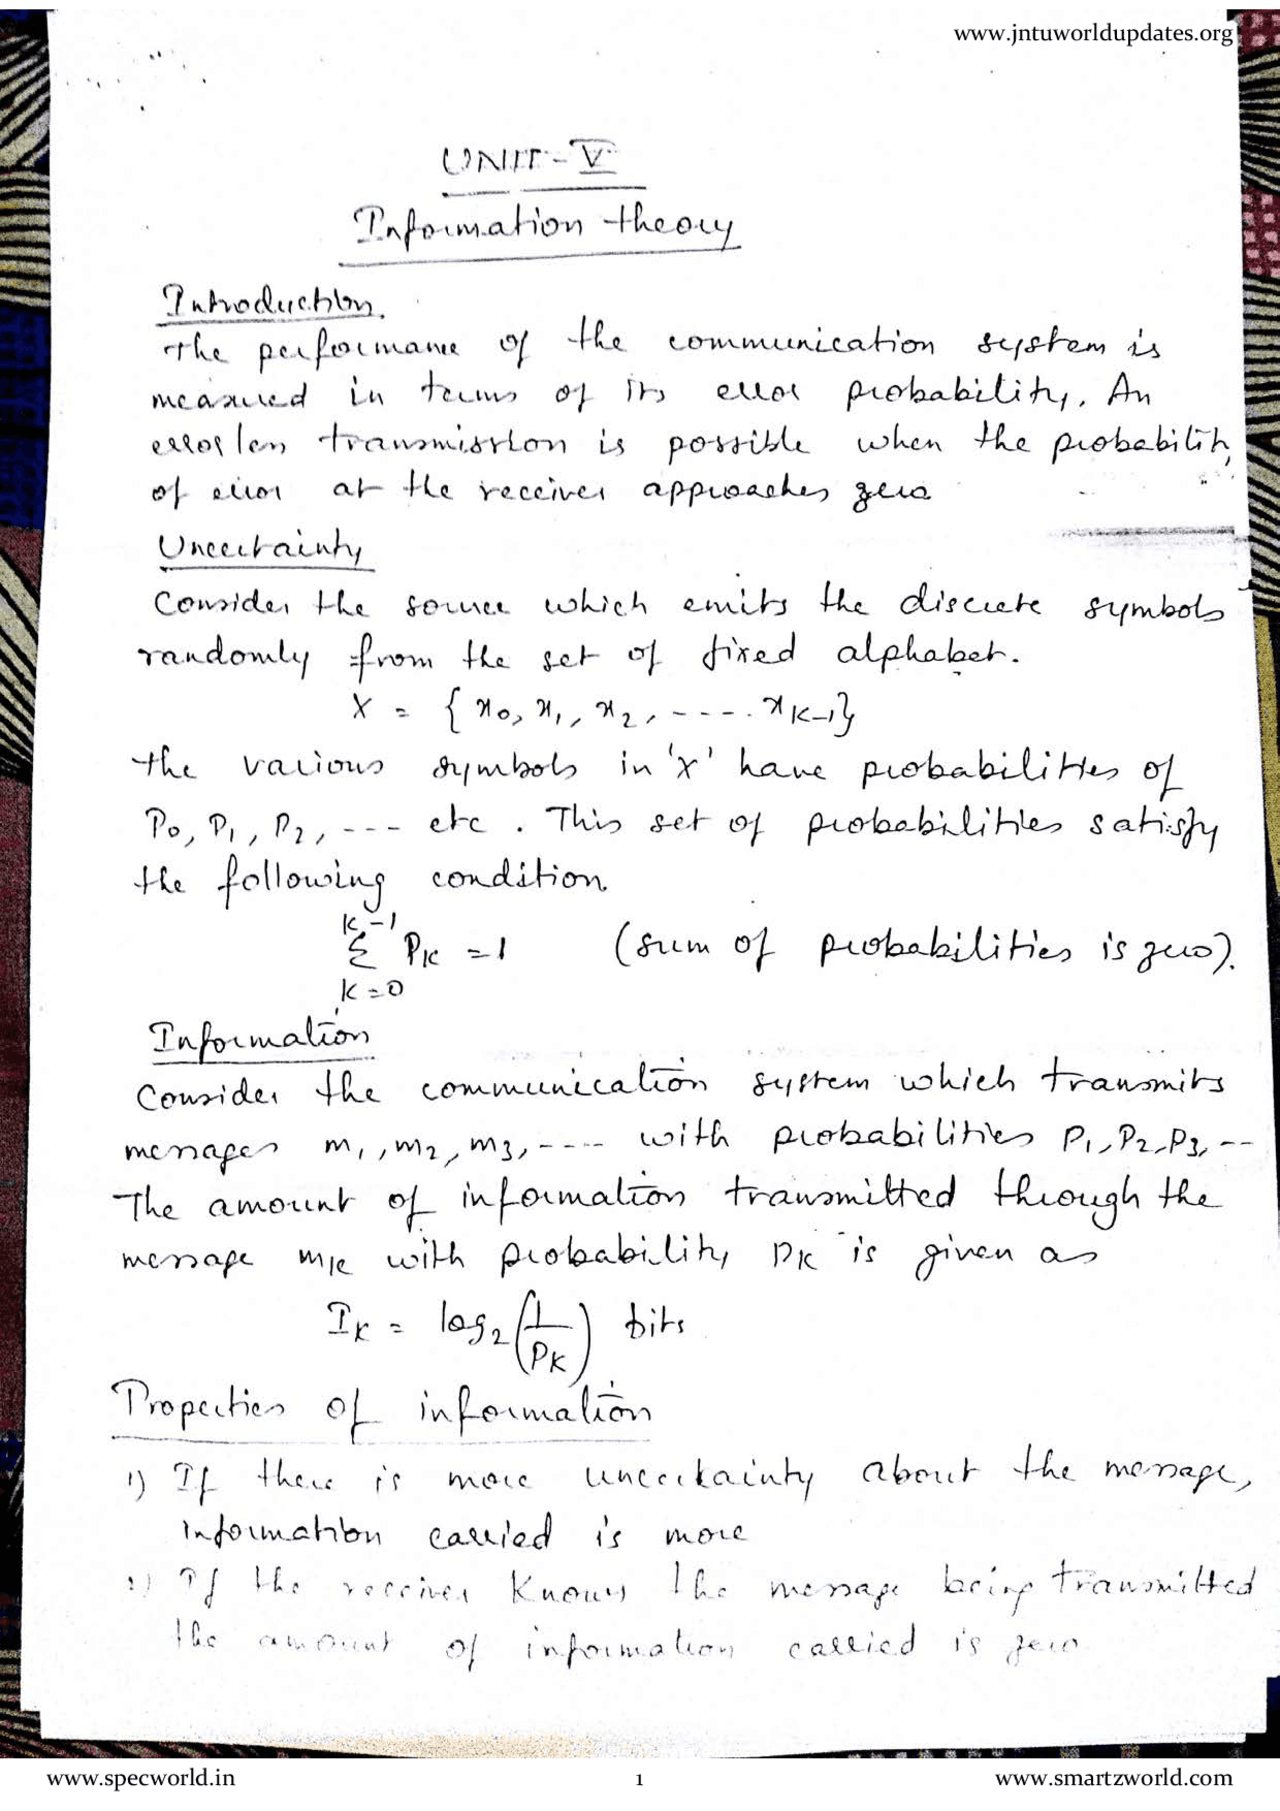 www.jntuworldupdates.org
UNIT-V
Information theory
Introduction.
The performance of the communication system is
measured in terms of its error probability. An
errorless transmission is possible when the probability
of error at the receiver approaches zero
Uncertainty
Consider the source which emits the discrete symbols
randomly from the set of fixed alphabet.
X = { x0, x1, x2, ---- . xK-1}
the various symbols in 'x' have probabilities of
P0, P1, P2, --- etc . This set of probabilities satisfy
the following condition.
K-1
Σ PK = 1 (sum of probabilities is zero).
K=0
Information
Consider the communication system which transmits
messages m1, m2, m3, ---- with probabilities P1, P2, P3, --
The amount of information transmitted through the
message mK with probability PK is given as
IK = log2 (1/PK) bits
Properties of information
1) If there is more uncertainty about the message,
information carried is more
2) If the receiver knows the message being transmitted
the amount of information carried is zero
www.specworld.in 1 www.smartzworld.com